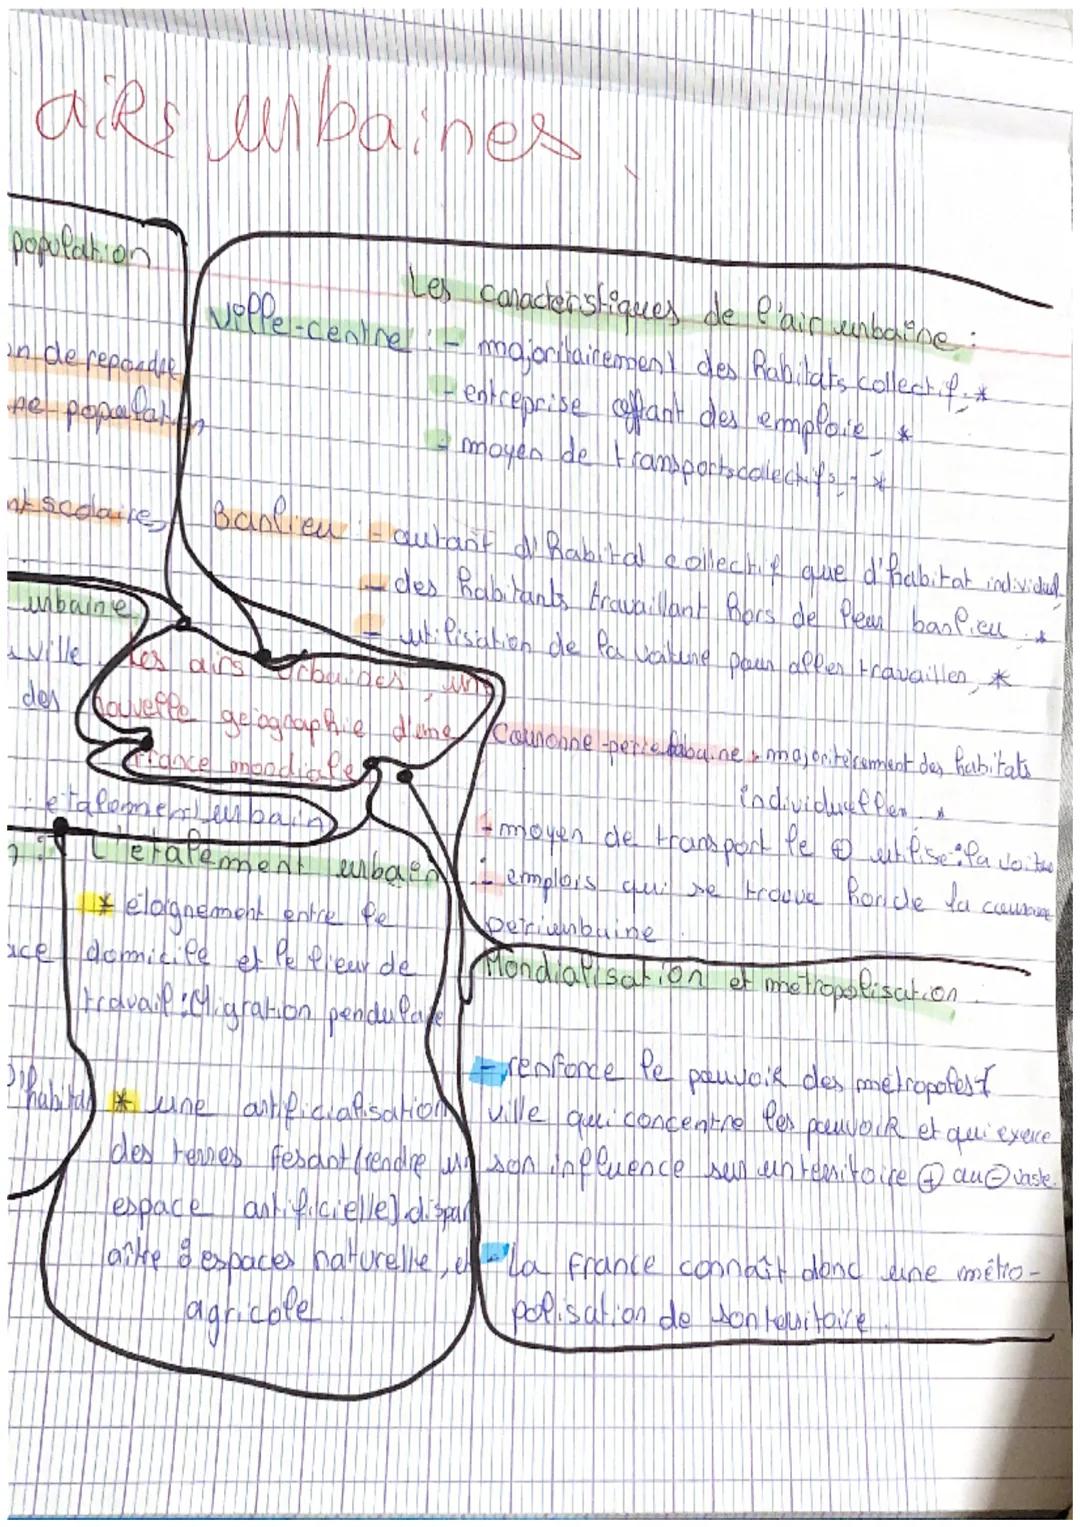 airs urbaines
population
on de repondre
ne population
nt scolaires
urbaine
ville
des
Les caracteristiques de l'air urbaine :
ville-centre : - majoritairement des habitats collectif, *
- entreprise offrant des emploie, *
- moyen de transports colectifs, *
Banlieu : - autant d'habitat collectif que d'habitat individuel
- des habitants travaillant hors de leur banlieu. *
- utilisation de la voiture pour aller travailler, *
Les airs urbaines, un
nouvelle geographie d'une
France mondiale
etalement urbain
Couronne-periurbaine : majoritèrement des habitats
individuelles. *
- moyen de transport le + utilise : la voiture
- emplois qui se trouve hors de la couronne
periurbaine
L'etalement urbain
* éloignement entre le
domicile et le lieur de
travail : Migration pendulaire
* une artificialisation
des terres fesant (rendre un
espace artificielle) dispar
aître : espaces naturelle, et
agricole.
ace
D'habitat
Mondialisation et métropolisation.
- renforce le pouvoir des métropoles :
ville qui concentre les pouvoir et qui exerce
son influence sur un territoire + ou - vaste.
- La France connaît donc une métro-
polisation de son territoire.